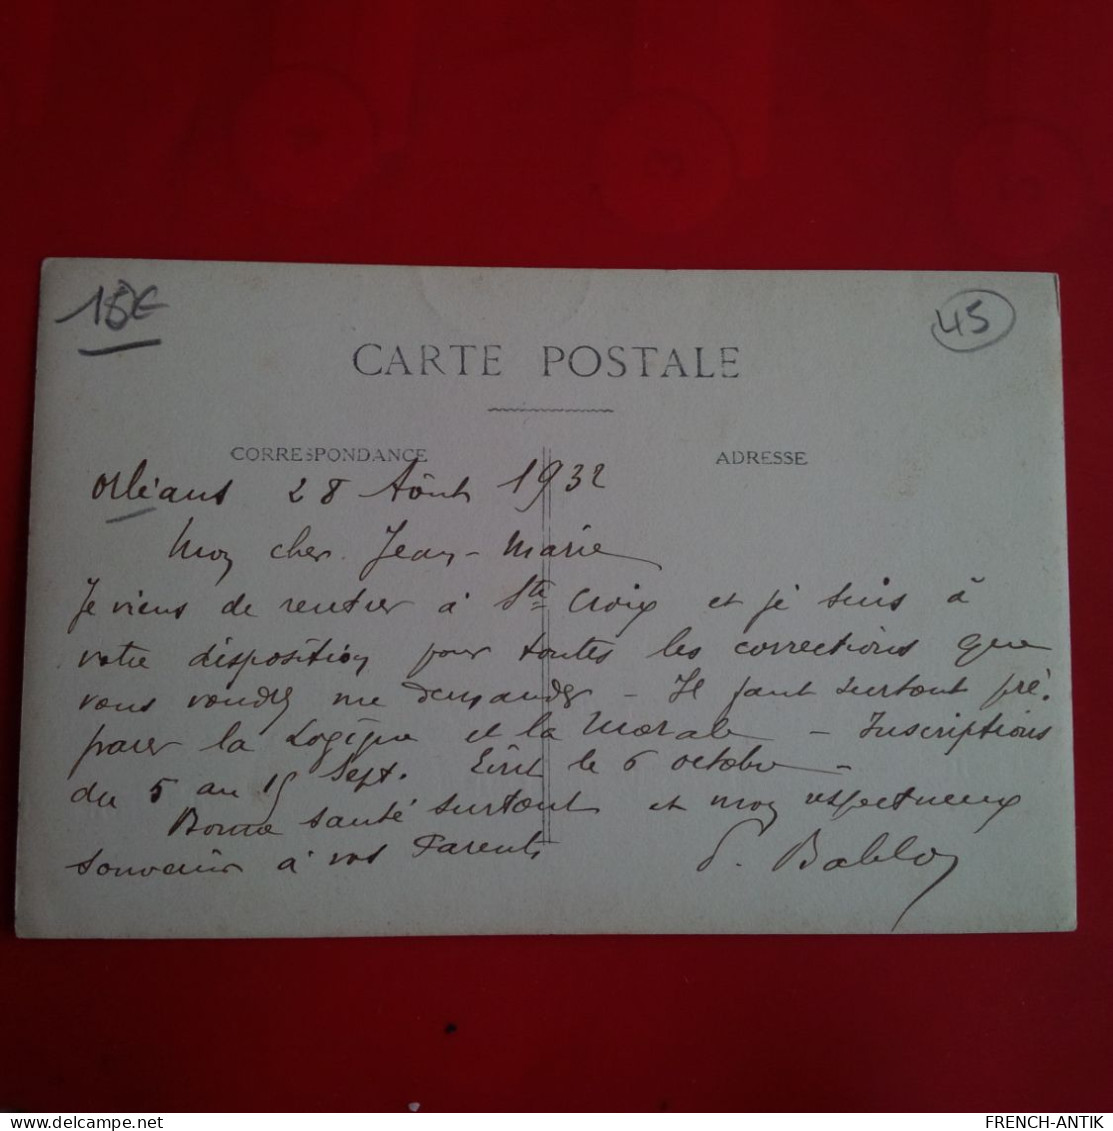 15€
45
CARTE POSTALE
CORRESPONDANCE
ADRESSE
Orléans 28 Août 1932
Mon cher Jean-Marie
Je viens de rentrer à Ste Croix et je suis à
votre disposition pour toutes les corrections que
vous voudrez me demander - Il faut surtout pré-
parer la Logique et la Morale - Inscriptions
du 5 au 15 Sept. Ecrit le 6 octobre -
Bonne santé surtout et mon respectueux
souvenir à vos Parents
FRENCH-ANTIK